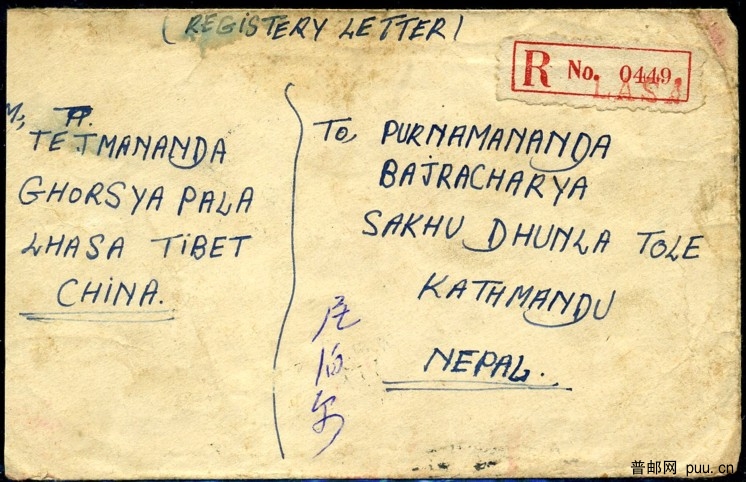 (REGISTERY LETTER)
R No. 0449
LASA
TEJMANANDA
GHORSYA PALA
LHASA TIBET
CHINA.
To, PURNAMANANDA
BAJRACHARYA
SAKHU DHUNLA TOLE
KATHMANDU
NEPAL.
尼伯尔
普邮网 puu.cn